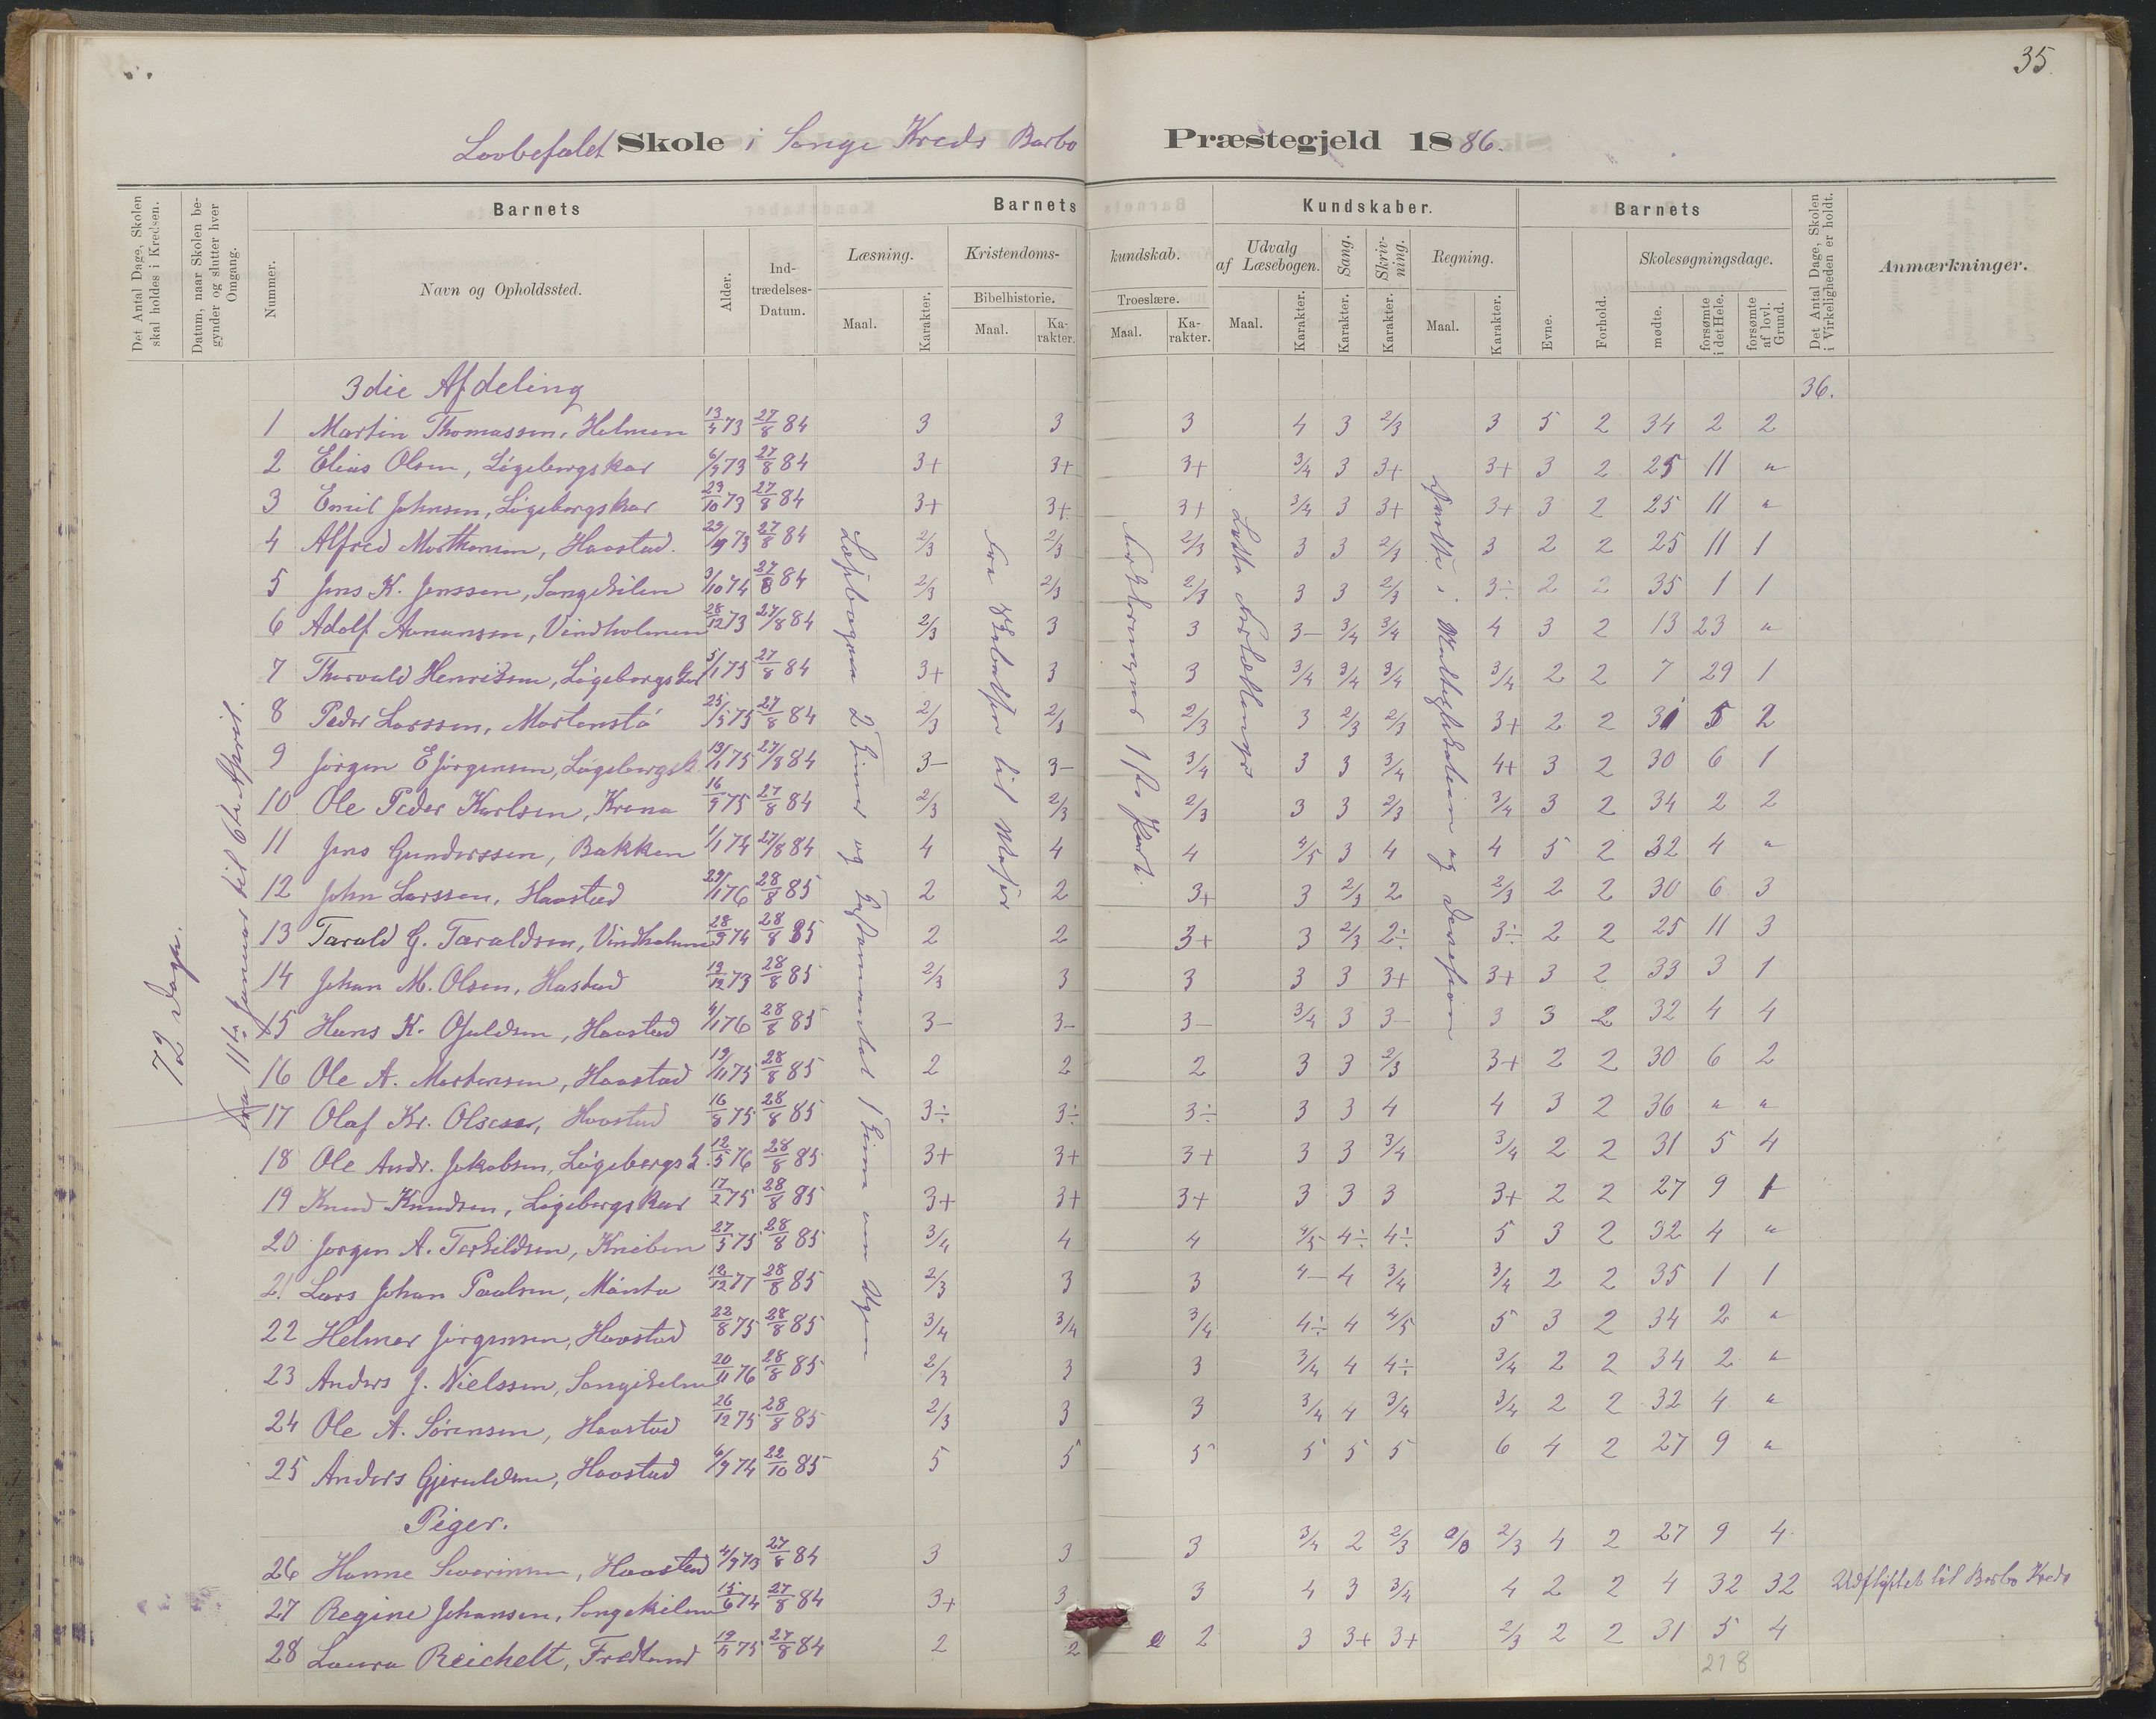 35.
Lovbefalet Skole i Songe Kreds Barbo Præstegjeld 1886.
Det Antal Dage, Skolen skal holdes i Kredsen.
Datum, naar Skolen begynder og slutter hver Omgang.
Barnets
Nummer.
Navn og Opholdssted.
Alder.
Indtrædelses-Datum.
Barnets Kundskaber.
Læsning.
Maal.
Karakter.
Kristendomskundskab.
Bibelhistorie.
Maal.
Karakter.
Troeslære.
Maal.
Karakter.
Udvalg af Læsebogen.
Maal.
Karakter.
Sang.
Karakter.
Skrivning.
Karakter.
Regning.
Maal.
Karakter.
Barnets
Evne.
Forhold.
Skolesøgningsdage.
mødte.
forsømte i det Hele.
forsømte af lovl. Grund.
Det Antal Dage, Skolen i Virkeligheden er holdt.
Anmærkninger.
72 Dage.
fra 11te Januar til 6te April.
3die Afdeling 36.
1 Martin Thomassen, Holmen 13/4 73 27/8 84 3 3 3 4 3 2/3 3 5 2 34 2 2
2 Elias Olsen, Løgebergskar 6/9 73 27/8 84 3+ 3+ 3+ 3/4 3 3+ 3+ 3 2 25 11 "
3 Emil Johnsen, Løgebergskar 29/10 73 27/8 84 3+ 3+ 3+ 3/4 3 3+ 3+ 3 2 25 11 "
4 Alfred Morthensen, Havstad. 29/9 73 27/8 84 2/3 2/3 2/3 3 3 2/3 3 2 2 25 11 1
5 Jens K. Jenssen, Songekilen 3/10 74 27/8 84 2/3 2/3 2/3 3 3 2/3 3÷ 2 2 35 1 1
6 Adolf Aanansen, Vindholmen 28/12 73 27/8 84 2/3 3 3 3- 3/4 3/4 4 3 2 13 23 "
7 Thorvald Henriksen, Løgebergskar 5/1 75 27/8 84 3+ 3 3 3/4 3/4 3/4 3/4 2 2 7 29 1
8 Peder Larssen, Mortenstø 25/5 75 27/8 84 2/3 2/3 2/3 3 2/3 2/3 3+ 2 2 31 5 2
9 Jørgen E Jørgensen, Løgebergsk 13/1 75 27/8 84 3- 3- 3/4 3 3 3/4 4+ 3 2 30 6 1
10 Ole Peder Karlsen, Krona 16/9 75 27/8 84 2/3 2/3 2/3 3 3 2/3 3/4 3 2 34 2 2
11 Jens Gunderssen, Bakken 1/1 74 27/8 84 4 4 4 4/5 3 4 4 5 2 32 4 "
12 John Larssen, Havstad 29/1 76 28/8 85 2 2 3+ 3 2/3 2 2/3 2 2 30 6 3
13 Tarald G. Taraldsen, Vindholmen 28/9 74 28/8 85 2 2 3+ 3 2/3 2÷ 3÷ 2 2 25 11 3
14 Johan M. Olsen, Hastad 19/12 73 28/8 85 2/3 3 3 3 3 3+ 3+ 3 2 33 3 1
15 Hans K. Ofuldsen, Havstad 4/1 76 28/8 85 3- 3- 3- 3/4 3 3- 3 3 2 32 4 4
16 Ole A. Mortensen, Havstad 19/11 75 28/8 85 2 2 2 3 3 2/3 3+ 2 2 30 6 2
17 Olaf Kr. Olsen, Havstad 16/8 75 28/8 85 3÷ 3÷ 3÷ 3 3 4 4 3 2 36 " "
18 Ole Andr. Jakobsen, Løgebergsk. 12/5 76 28/8 85 3+ 3+ 3+ 3 3 3/4 3/4 2 2 31 5 4
19 Knud Knudsen, Løgebergskar 17/2 75 28/8 85 3+ 3+ 3+ 3 3 3 3+ 2 2 27 9 1
20 Jørgen A. Terkildsen, Kniben 27/5 75 28/8 85 3/4 4 4 4/5 4÷ 4÷ 5 3 2 32 4 "
21 Lars Johan Paulsen, 12/12 77 28/8 85 2/3 3 3 4- 4 3/4 3/4 2 2 35 1 1
22 Helmer Jørgensen, Havstad 22/8 75 28/8 85 3/4 3/4 3/4 4÷ 4 4/5 5 3 2 34 2 "
23 Anders J. Nielssen, Songekilen 20/11 76 28/8 85 2/3 3 3 3/4 4 4÷ 3/4 2 2 34 2 "
24 Ole A. Sørensen, Havstad 26/12 75 28/8 85 2/3 3 3 3/4 4 3/4 3/4 2 2 32 4 "
25 Anders Gjeruldsen, Havstad 4/9 74 22/10 85 5 5 5 5 5 5 6 4 2 27 9 "
Piger.
26 Hanne Severinsen, Havstad 4/9 73 27/8 84 3 3 3 3/4 2 2/3 2/3 4 2 27 9 4
27 Regine Johansen, Songekilen 15/6 74 27/8 84 3+ 3 3 4 3 3/4 4 2 2 4 32 32 Udflyttet til Barbo Kreds
28 Laura Reichelt, Fredlund 19/4 75 27/8 84 2 2 2 3 3+ 3+ 2/3 2 2 31 5 4
218
Læsebogen 2 Timer og Testamentet 1 Time om Ugen
fra til
Forklaringens 1ste Part.
Lette Fortællinger
i Multiplikation og Division